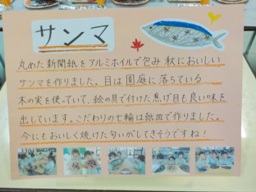 サンマ
丸めた新聞紙をアルミホイルで包み秋においしい
サンマを作りました。目は園庭に落ちている
木の実を使っていて、絵の具で付けた焦げ目も良い味を
出しています。こだわりの七輪は紙皿で作りました。
今にもおいしく焼けた匂いがしてきそうですね！